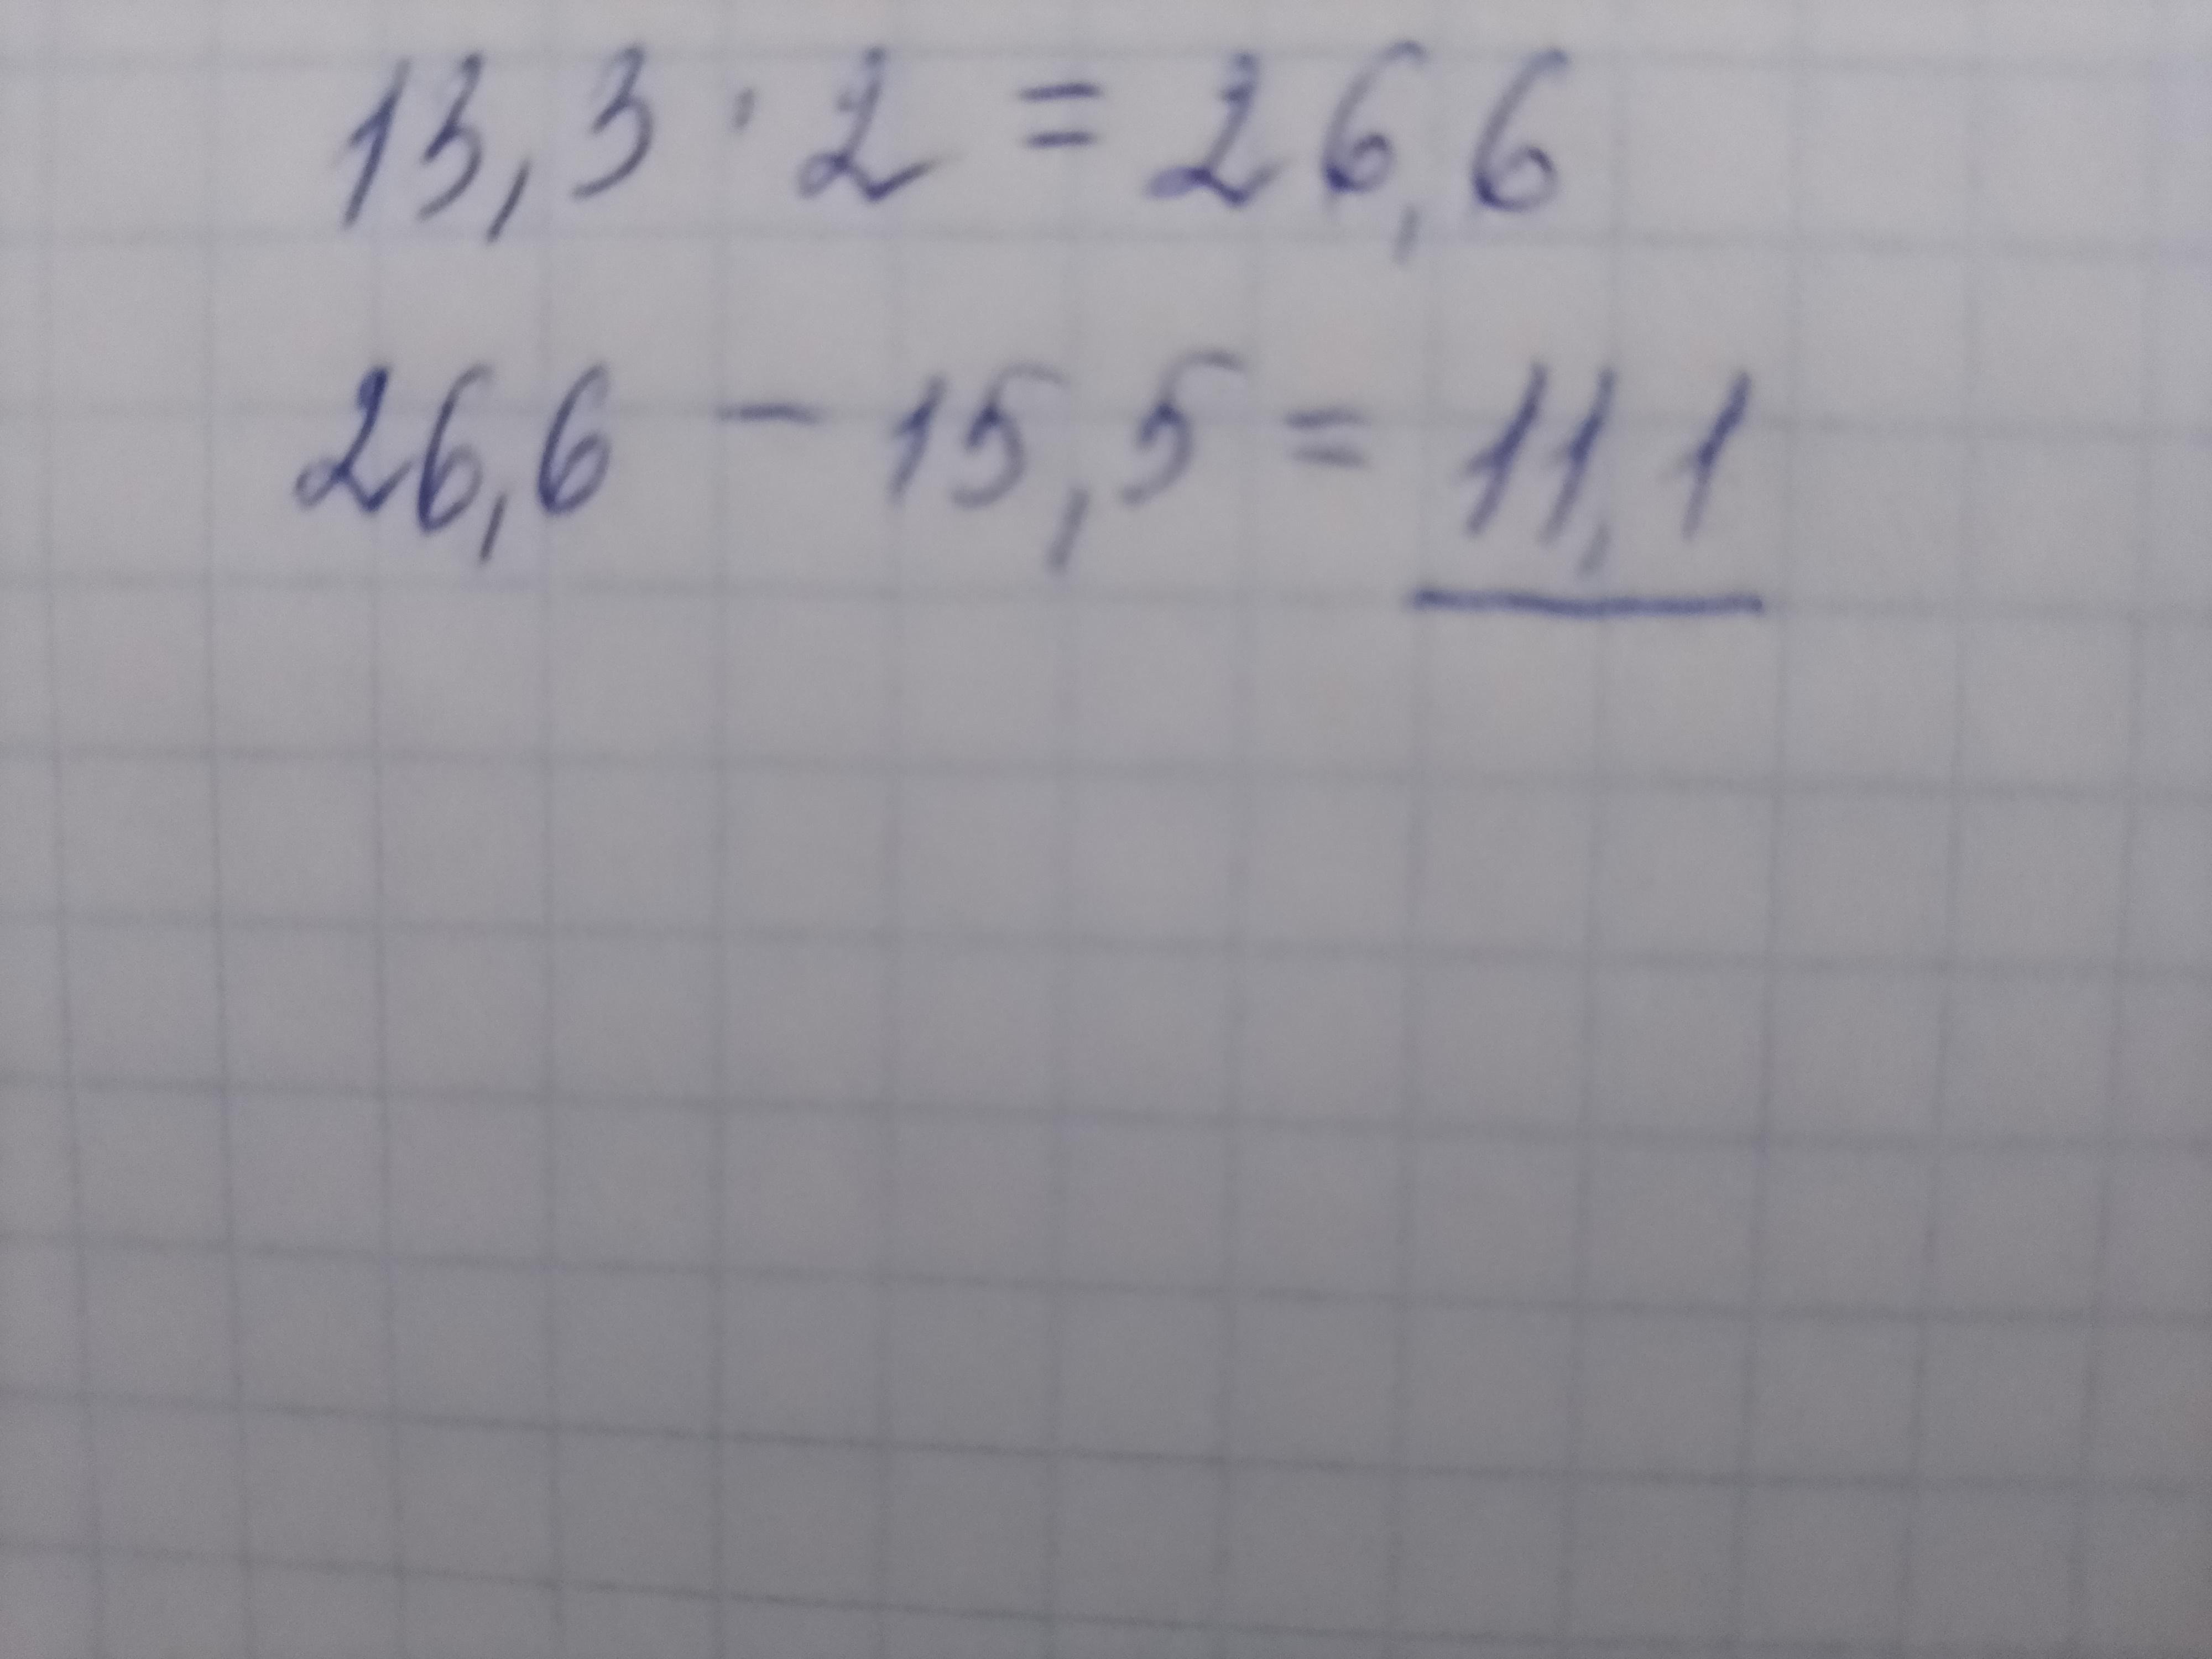 13,3 · 2 = 26,6
26,6 - 15,5 = 11,1